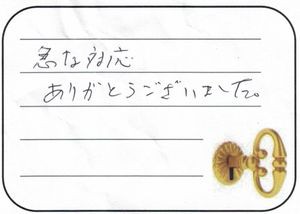 急な対応
ありがとうございました。